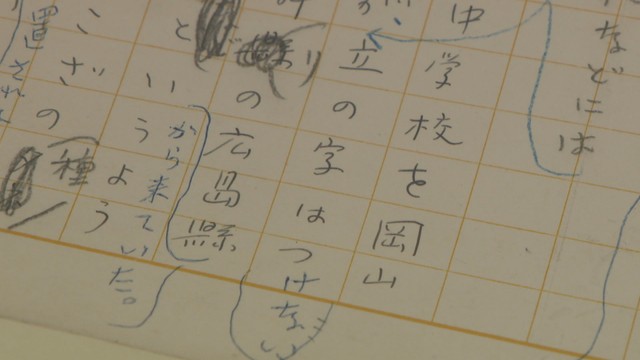 などには
中
学校を岡山
立の字はつけない
の広島縣
と
いうよう
から来ていた。
こ
ざ
の種
置され